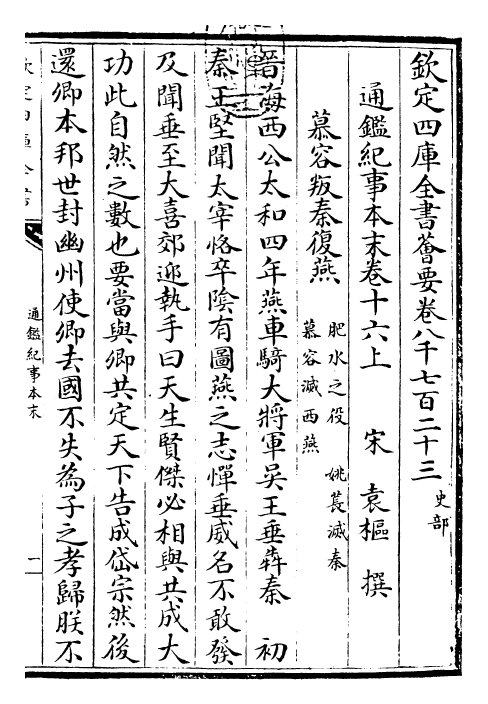 欽定四庫全書薈要卷八千七百二十三 史部
通鑑紀事本末卷十六上 宋 袁樞 撰
慕容叛秦復燕 肥水之役 姚萇滅秦
慕容滅西燕
晉海西公太和四年燕車騎大將軍吳王垂犇秦 初
秦王堅聞太宰恪卒陰有圖燕之志憚垂威名不敢發
及聞垂至大喜郊迎執手曰天生賢傑必相與共成大
功此自然之數也要當與卿共定天下告成岱宗然後
還卿本邦世封幽州使卿去國不失為子之孝歸朕不
通鑑紀事本末
一